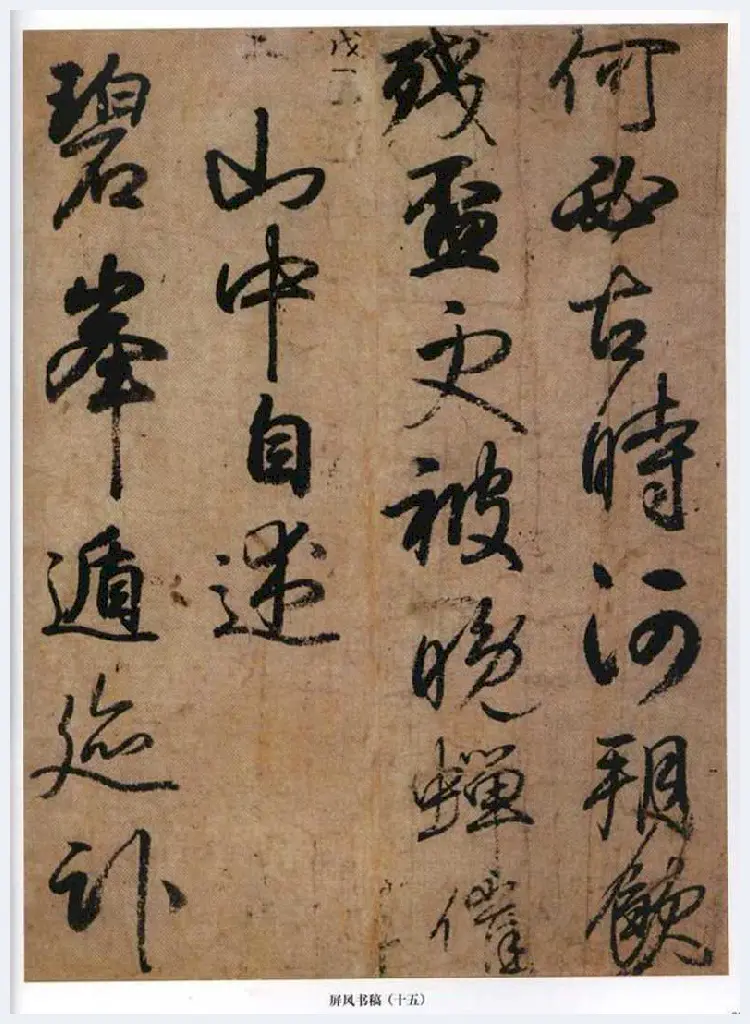 何必古時河朔飲
殘盃更被晚蟬催
山中自述
碧峯遁迹
屏风书稿（十五）